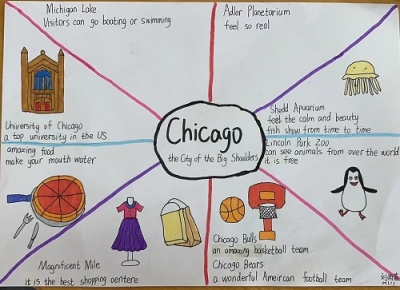 Michigan Lake
Visitors can go boating or swimming
Adler Planetarium
feel so real
University of Chicago
a top university in the US
Shedd Apuarium
feel the calm and beauty
fish show from time to time
Chicago
the City of the Big Shoulders
amazing food
make your mouth water
Lincoln Park Zoo
can see animals from over the world
it is free
Magnificent Mile
it is the best shopping centere
Chicago Bulls
an amazing basketball team
Chicago Bears
a wonderful Ameircan football team